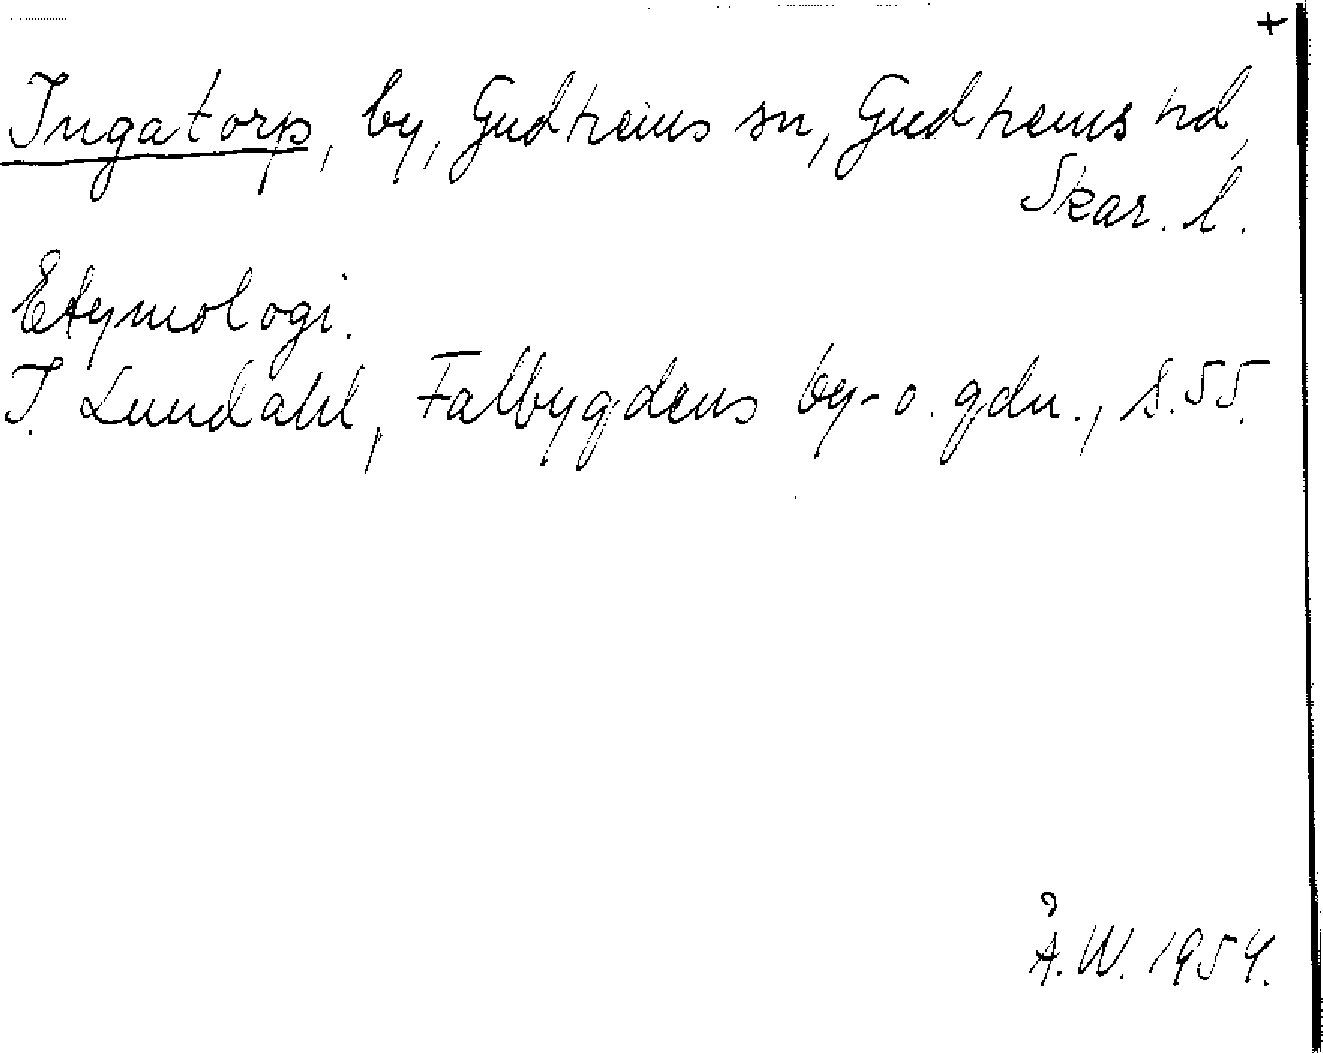 +
Ingatorp, by, Gudhems sn, Gudhems hd,
Skar. l.
Etymologi.
I. Lundahl, Falbygdens by- o. gdn., s. 55.
Å. W. 1954.